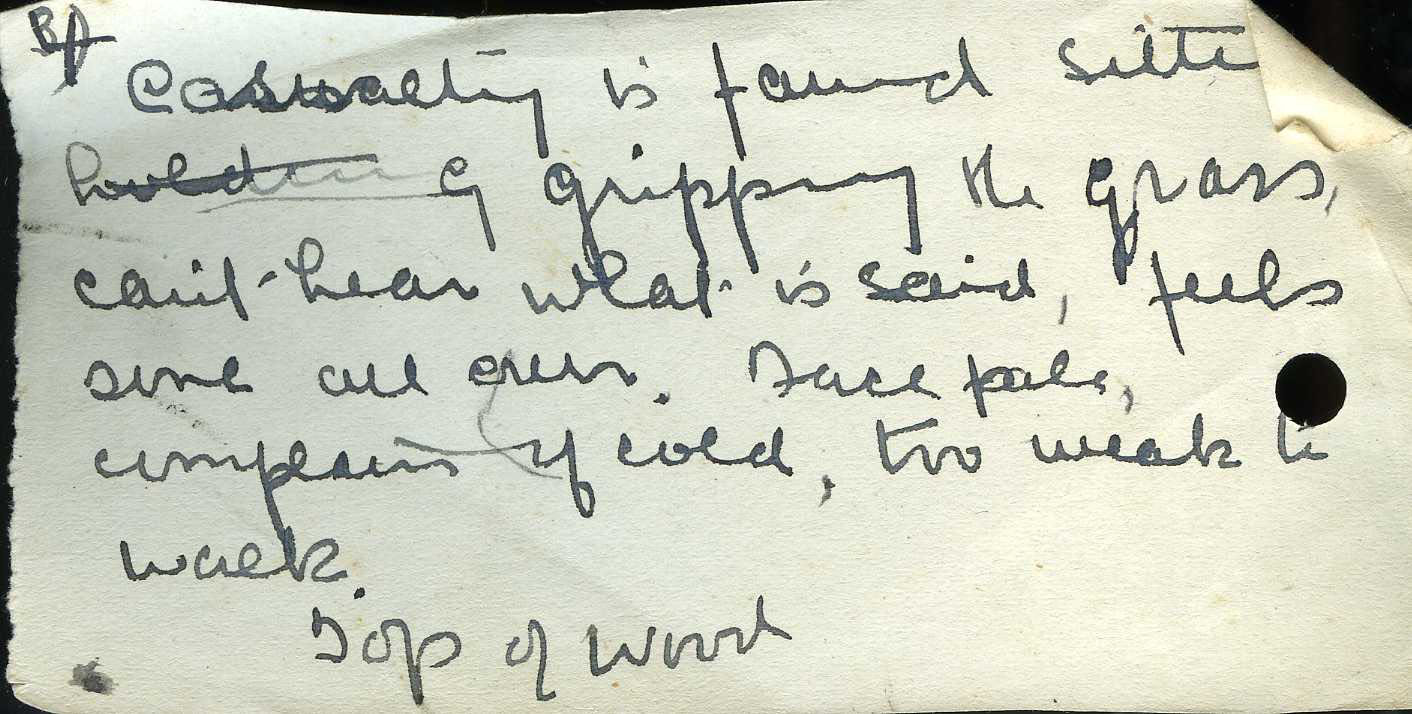 Casualty is found sitti
holding & gripping the grass,
can't hear what is said, feels
sore all over. Face pale,
complains of cold, too weak to
walk.
Top of wood